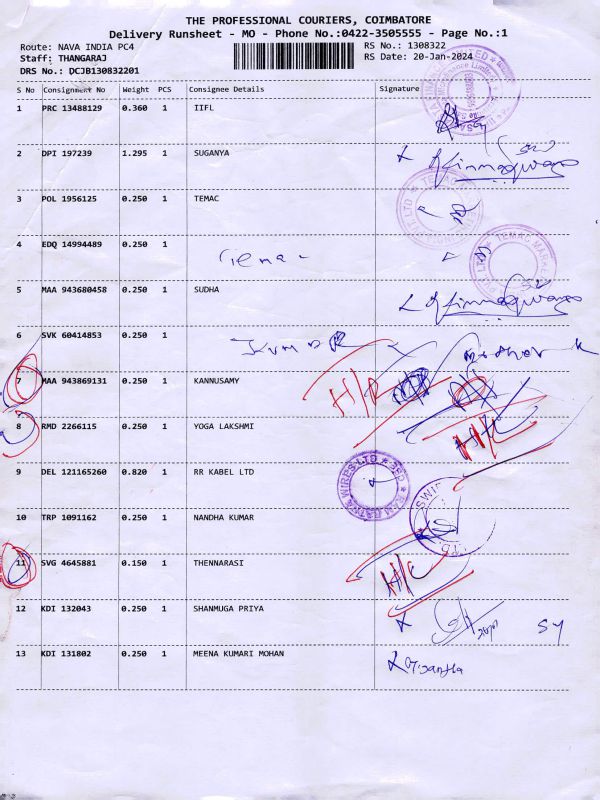 THE PROFESSIONAL COURIERS, COIMBATORE
Delivery Runsheet - MO - Phone No.:0422-3505555 - Page No.:1
Route: NAVA INDIA PC4 RS No.: 1308322
Staff: THANGARAJ RS Date: 20-Jan-2024
DRS No.: DCJB130832201
S No Consignment No Weight PCS Consignee Details Signature
1 PRC 13488129 0.360 1 IIFL
2 DPI 197239 1.295 1 SUGANYA
3 POL 1956125 0.250 1 TEMAC
4 EDQ 14994489 0.250 1 Temac
5 MAA 943680458 0.250 1 SUDHA
6 SVK 60414853 0.250 1 KUMAR
7 MAA 943869131 0.250 1 KANNUSAMY H/C
8 RMD 2266115 0.250 1 YOGA LAKSHMI H/C
9 DEL 121165260 0.820 1 RR KABEL LTD
10 TRP 1091162 0.250 1 NANDHA KUMAR
11 SVG 4645881 0.150 1 THENNARASI H/C
12 KDI 132043 0.250 1 SHANMUGA PRIYA SY
13 KDI 131802 0.250 1 MEENA KUMARI MOHAN